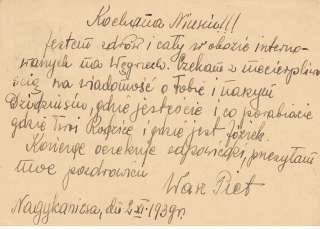 Kochana Niusiu!!!
Jestem zdrów i cały w obozie interno-
wanych na Węgrzech. Czekam z niecierpliwo-
ścią na wiadomość o Tobie i naszym
Dziadziusiu, gdzie jesteście i co porabiacie
gdzie Twoi Rodzice i gdzie jest Józek.
Kończę oczekuję odpowiedzi, przesyłam
moc pozdrowień
Wasz Piet
Nagykanizsa, dn 2 XI 1939r.